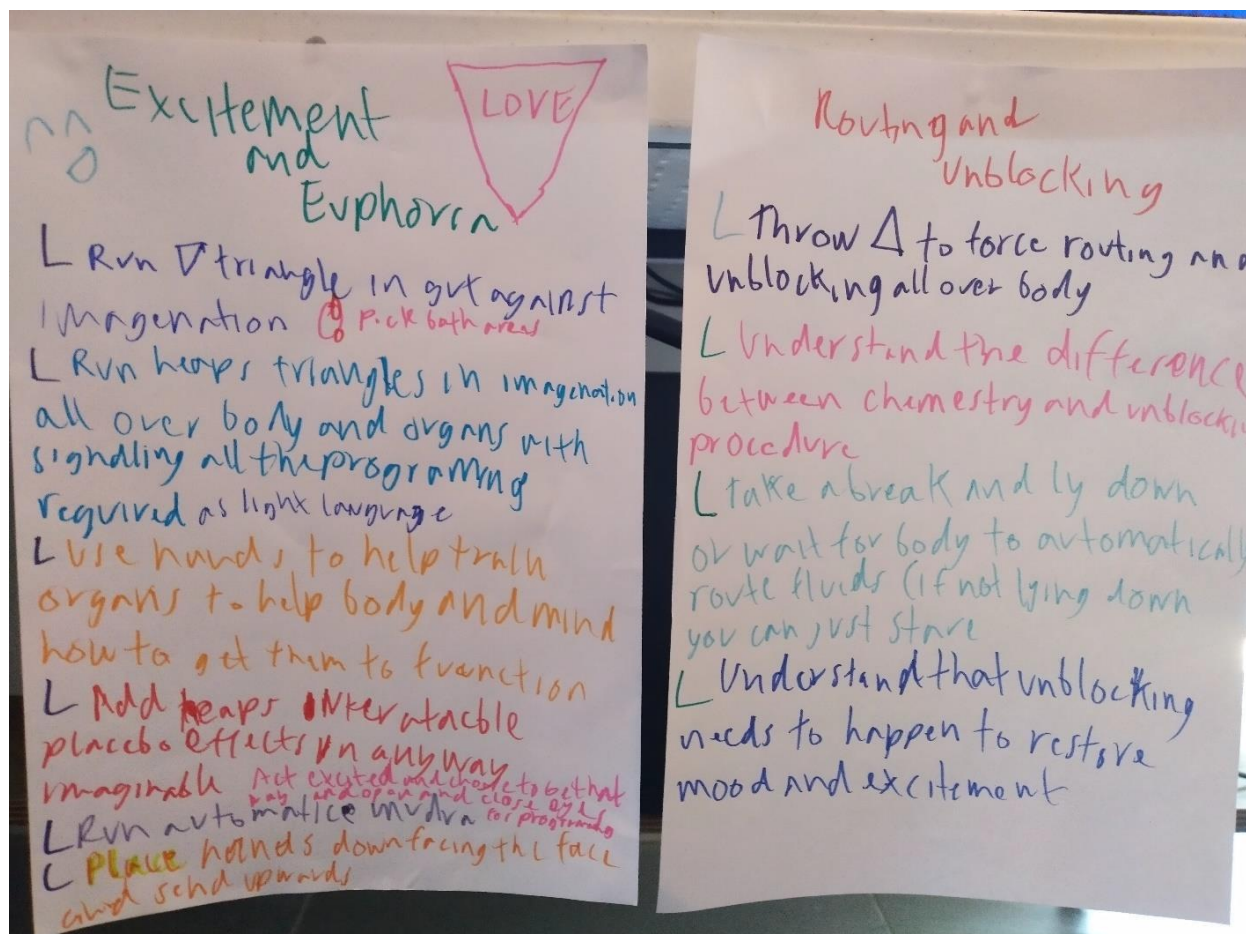 Excitement
and
Euphoria
LOVE
L Run ▽ triangle in gut against
imagenation pick both areas
L Run heaps triangles in imagenation
all over body and organs with
signalling all the programing
required as light language
L Use hands to help train
organs to help body and mind
how to get them to function
L Add heaps
placebo effects in anyway
imaginable Act excited and chose to be that
way and open and close eyes
L Run automatice mudra for programing
L Place hands down facing the face
and send upwards
Routing and
Unblocking
L Throw △ to force routing and
unblocking all over body
L Understand the difference
between chemestry and
procedure
L take a break and ly down
or wait for body to automatically
route fluids (if not lying down
you can just stare
L Understand that unblocking
needs to happen to restore
mood and excitement